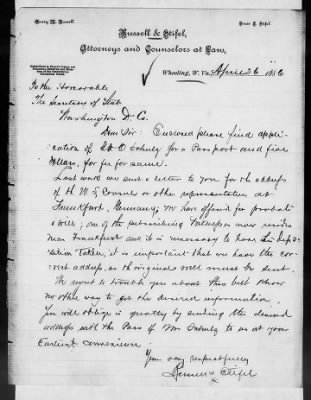 Henry M. Russell
Ernst G. Stifel
Russell & Stifel,
Attorneys and Counselors at Law,
Wheeling, W. Va. April 26 1886
To the Honorable
The Secretary of State
Washington D. Co.
Dear Sir: Enclosed please find appli-
cation of Schulz for a Passport and five
Dollars, for fee for same.
Last week we sent a letter to you for the address
of the U S Consul or other representative at
Frankfurt, Germany; We have offered for probate
a will; one of the subscribing witnesses now resides
near Frankfurt and it is necessary to have his depo-
sition taken, it is important that we have the cor-
rect address, as the original will must be sent.
We regret to trouble you about this but know
no other way to get the desired information.
You will oblige us greatly by sending the desired
address with the Pass of Mr Schulz to us at your
Earliest convenience.
Yours very respectfully
Russell & Stifel